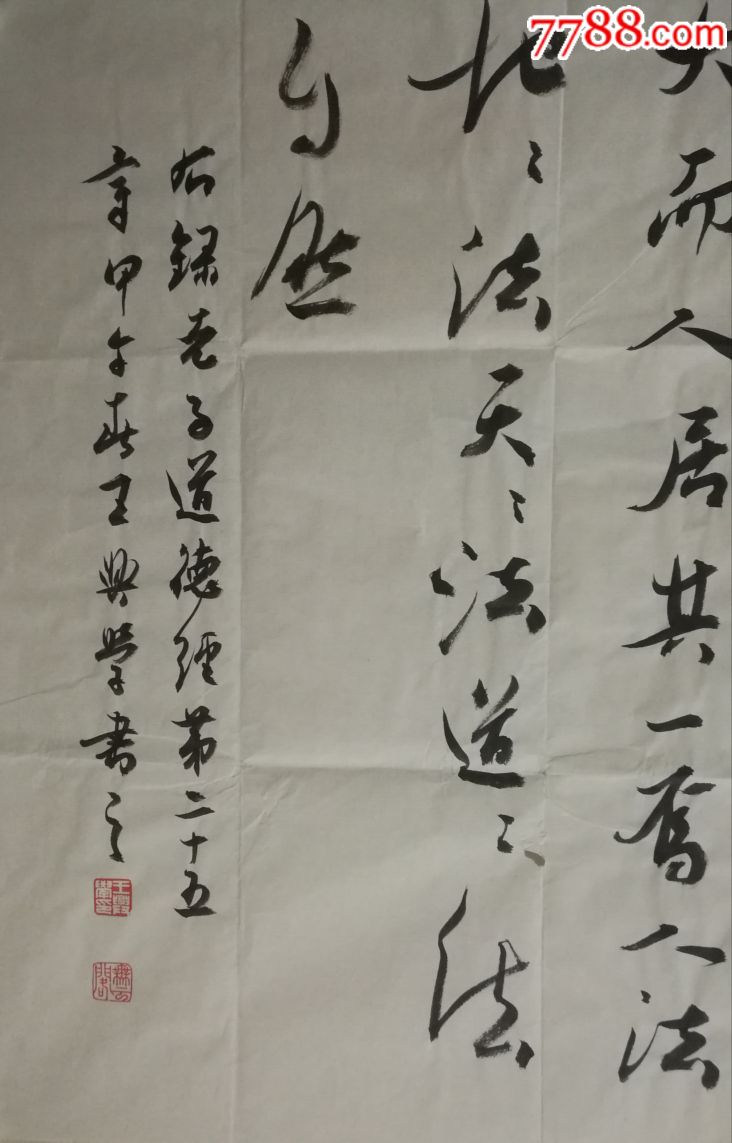 7788.com
大而人居其一焉人法
地〻法天〻法道〻法
自然
右录老子道德經第二十五
章甲午春王興学書之